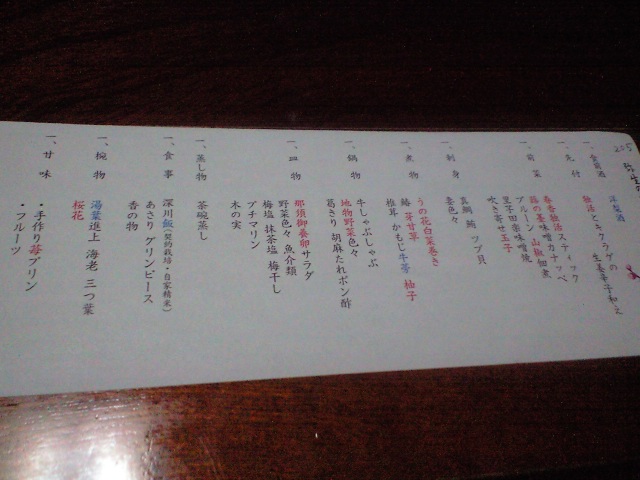 弥生
一、食前酒 洋梨酒
一、先付 独活とキクラゲの
生姜辛子和え
一、前菜 春香独活スティック
蕗の薹味噌カナッペ
プルーン 山椒佃煮
里芋田楽味噌焼
吹き寄せ玉子
一、刺身 真鯛 鮪 ツブ貝
妻色々
一、煮物 うの花白菜巻き
鰆 芽甘草
椎茸 かもじ牛蒡 柚子
一、鍋物 牛しゃぶしゃぶ
地物野菜色々
葛きり 胡麻たれポン酢
一、皿物 那須御養卵サラダ
野菜色々 魚介類
梅塩 抹茶塩 梅干し
プチマリン
木の実
一、蒸し物 茶碗蒸し
一、食事 深川飯(契約栽培・自家精米)
あさり グリンピース
香の物
一、椀物 湯葉進上 海老 三つ葉
桜花
一、甘味 ・手作り苺プリン
・フルーツ